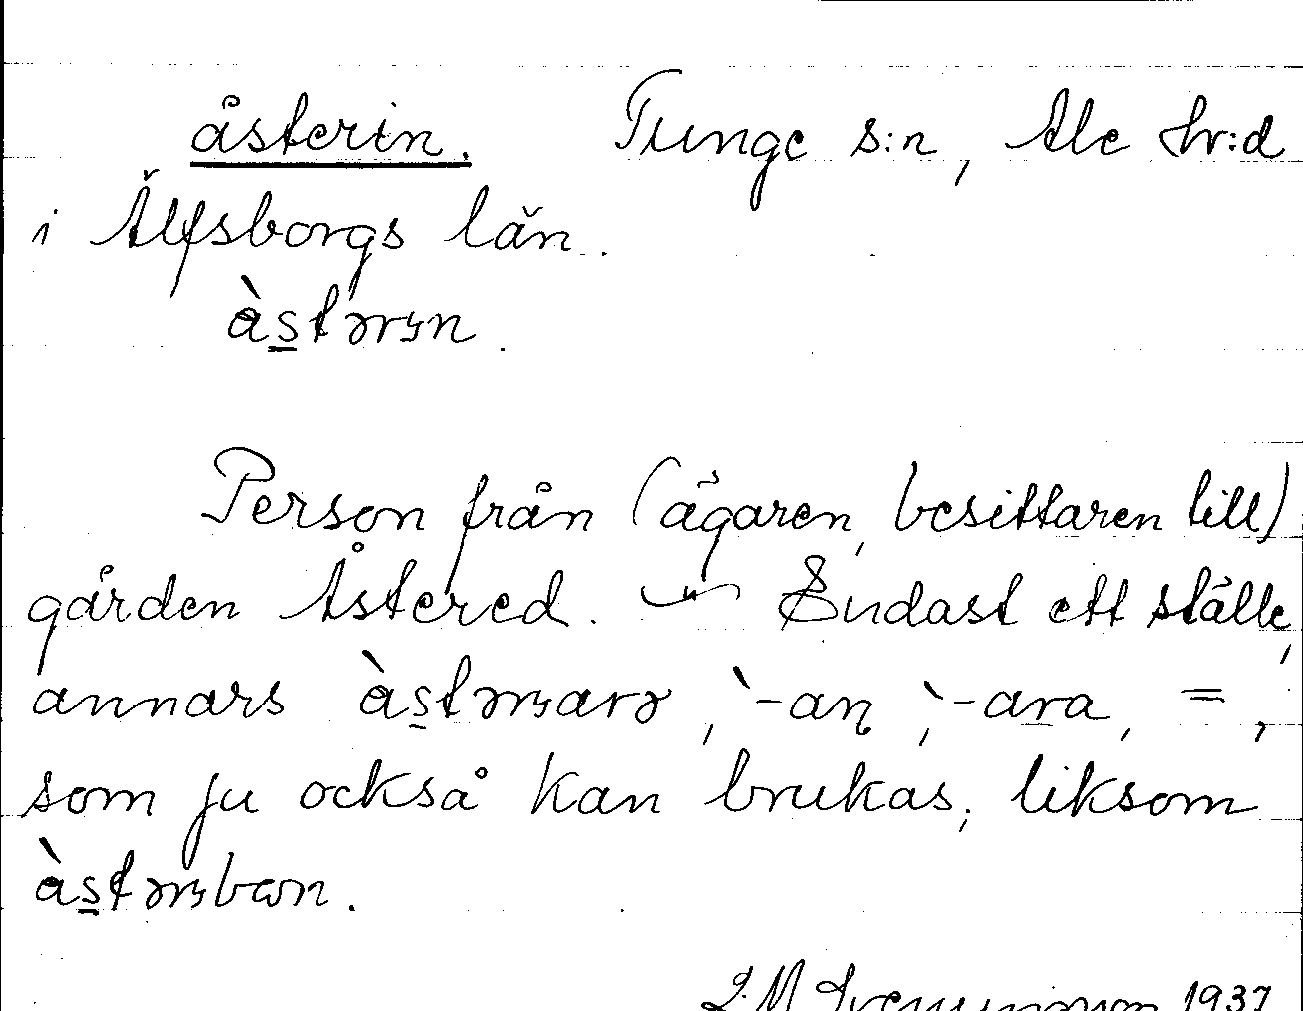 åsterin. Tunge s:n, Ale hr:d
i Älfsborgs län.
àstərın.
Person från (ägaren, besittaren till)
gården Åstered. Endast ett ställe,
annars àstərıarə, `-aɳ, `-ara, =,
som ju också kan brukas, liksom
àstərıbən.
1937